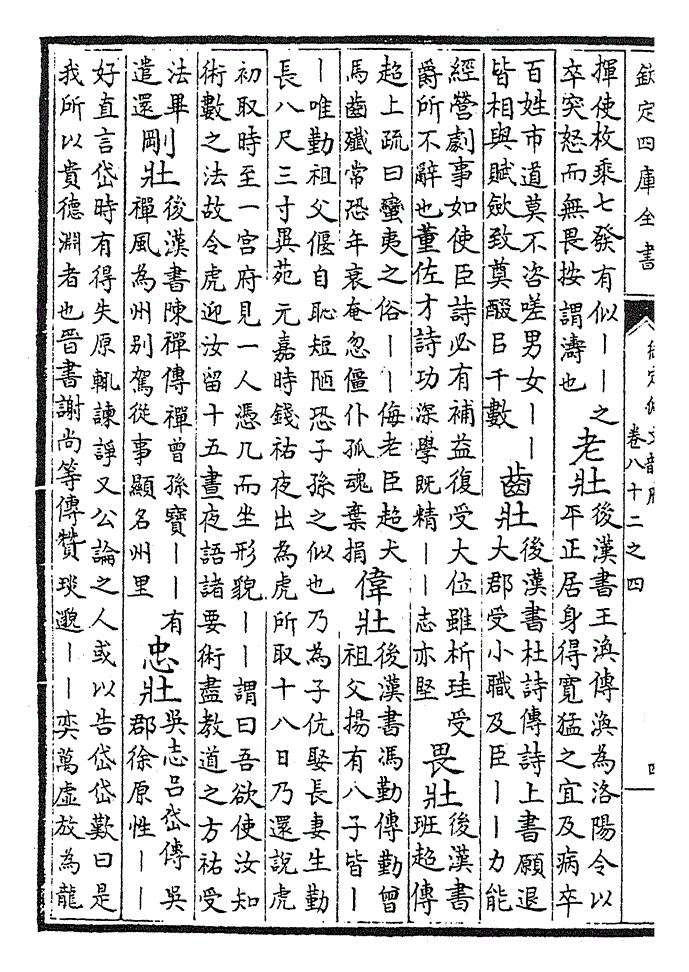 欽定四庫全書
卷八十二之四
四
揮使枚乘七發有似｜｜之
卒突怒而無畏按謂濤也
老壯
後漢書王渙傳渙為洛陽令以
平正居身得寛猛之宜及病卒
百姓市道莫不咨嗟男女｜｜
皆相與賦斂致奠醊㠯千數
齒壯
後漢書杜詩傳詩上書願退
大郡受小職及臣｜｜力能
經營劇事如使臣詩必有補益復受大位雖析珪受
爵所不辭也董佐才詩功深學既精｜｜志亦堅
畏壯
後漢書
班超傳
超上疏曰蠻夷之俗｜｜侮老臣超犬
馬齒殲常恐年衰奄忽僵仆孤魂棄捐
偉壯
後漢書馮勤傳勤曾
祖父揚有八子皆｜
｜唯勤祖父偃自恥短陋恐子孫之似也乃為子伉娶長妻生勤
長八尺三寸異苑元嘉時錢祜夜出為虎所取十八日乃還說虎
初取時至一宮府見一人憑几而坐形貌｜｜謂曰吾欲使汝知
術數之法故令虎迎汝留十五晝夜語諸要術盡教道之方祜受
法畢
遣還
剛壯
後漢書陳禪傳禪曾孫寶｜｜有
禪風為州别駕從事顯名州里
忠壯
吳志呂岱傳吳
郡徐原性｜｜
好直言岱時有得失原輒諫諍又公論之人或以告岱岱歎曰是
我所以貴德淵者也晉書謝尚等傳贊琰邈｜｜奕萬虛放為龍